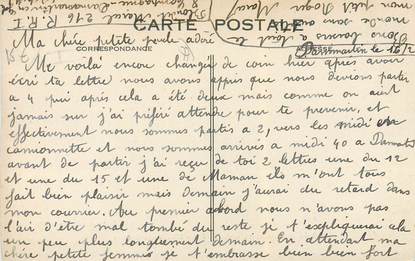 CARTE POSTALE
CORRESPONDANCE
Dammartin le 16/2
Ma chère petite poule adoré
Me voilà encore changer de coin hier après avoir
écri ta lettre nous avons appris que nous devions partir
a 4 puis après cela a été deux mais comme on sait
jamais sur j'ai préféré attendre pour te prevenir, et
effectivement nous sommes partis a 2, vers les midi en
camionnette et nous sommes arrivés a midi 40 a Dammartin
avant de partir j'ai reçu de toi 2 lettres une du 12
et une du 15 et une de Maman elles m'ont tous
fait bien plaisir mais demain j'aurai du retard dans
mon courrier. Au premier abord nous n'avons pas
l'air d'être mal tombé du reste je t'expliquerai cela
un peu plus longuement demain. En attendant ma
chère petite femme je t'embrasse bien bien fort